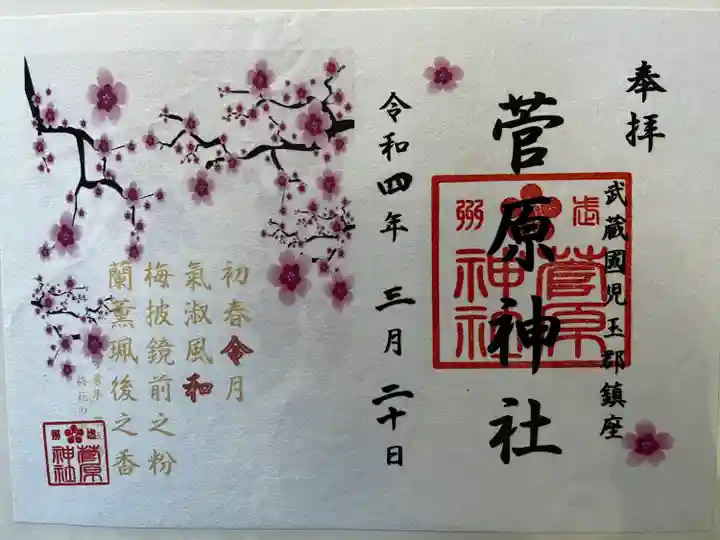 奉拝
武蔵國児玉郡鎮座
菅原神社
武州
菅原
神社
令和四年 三月 二十日
初春令月
氣淑風和
梅披鏡前之粉
蘭薫珮後之香
武州
菅原
神社